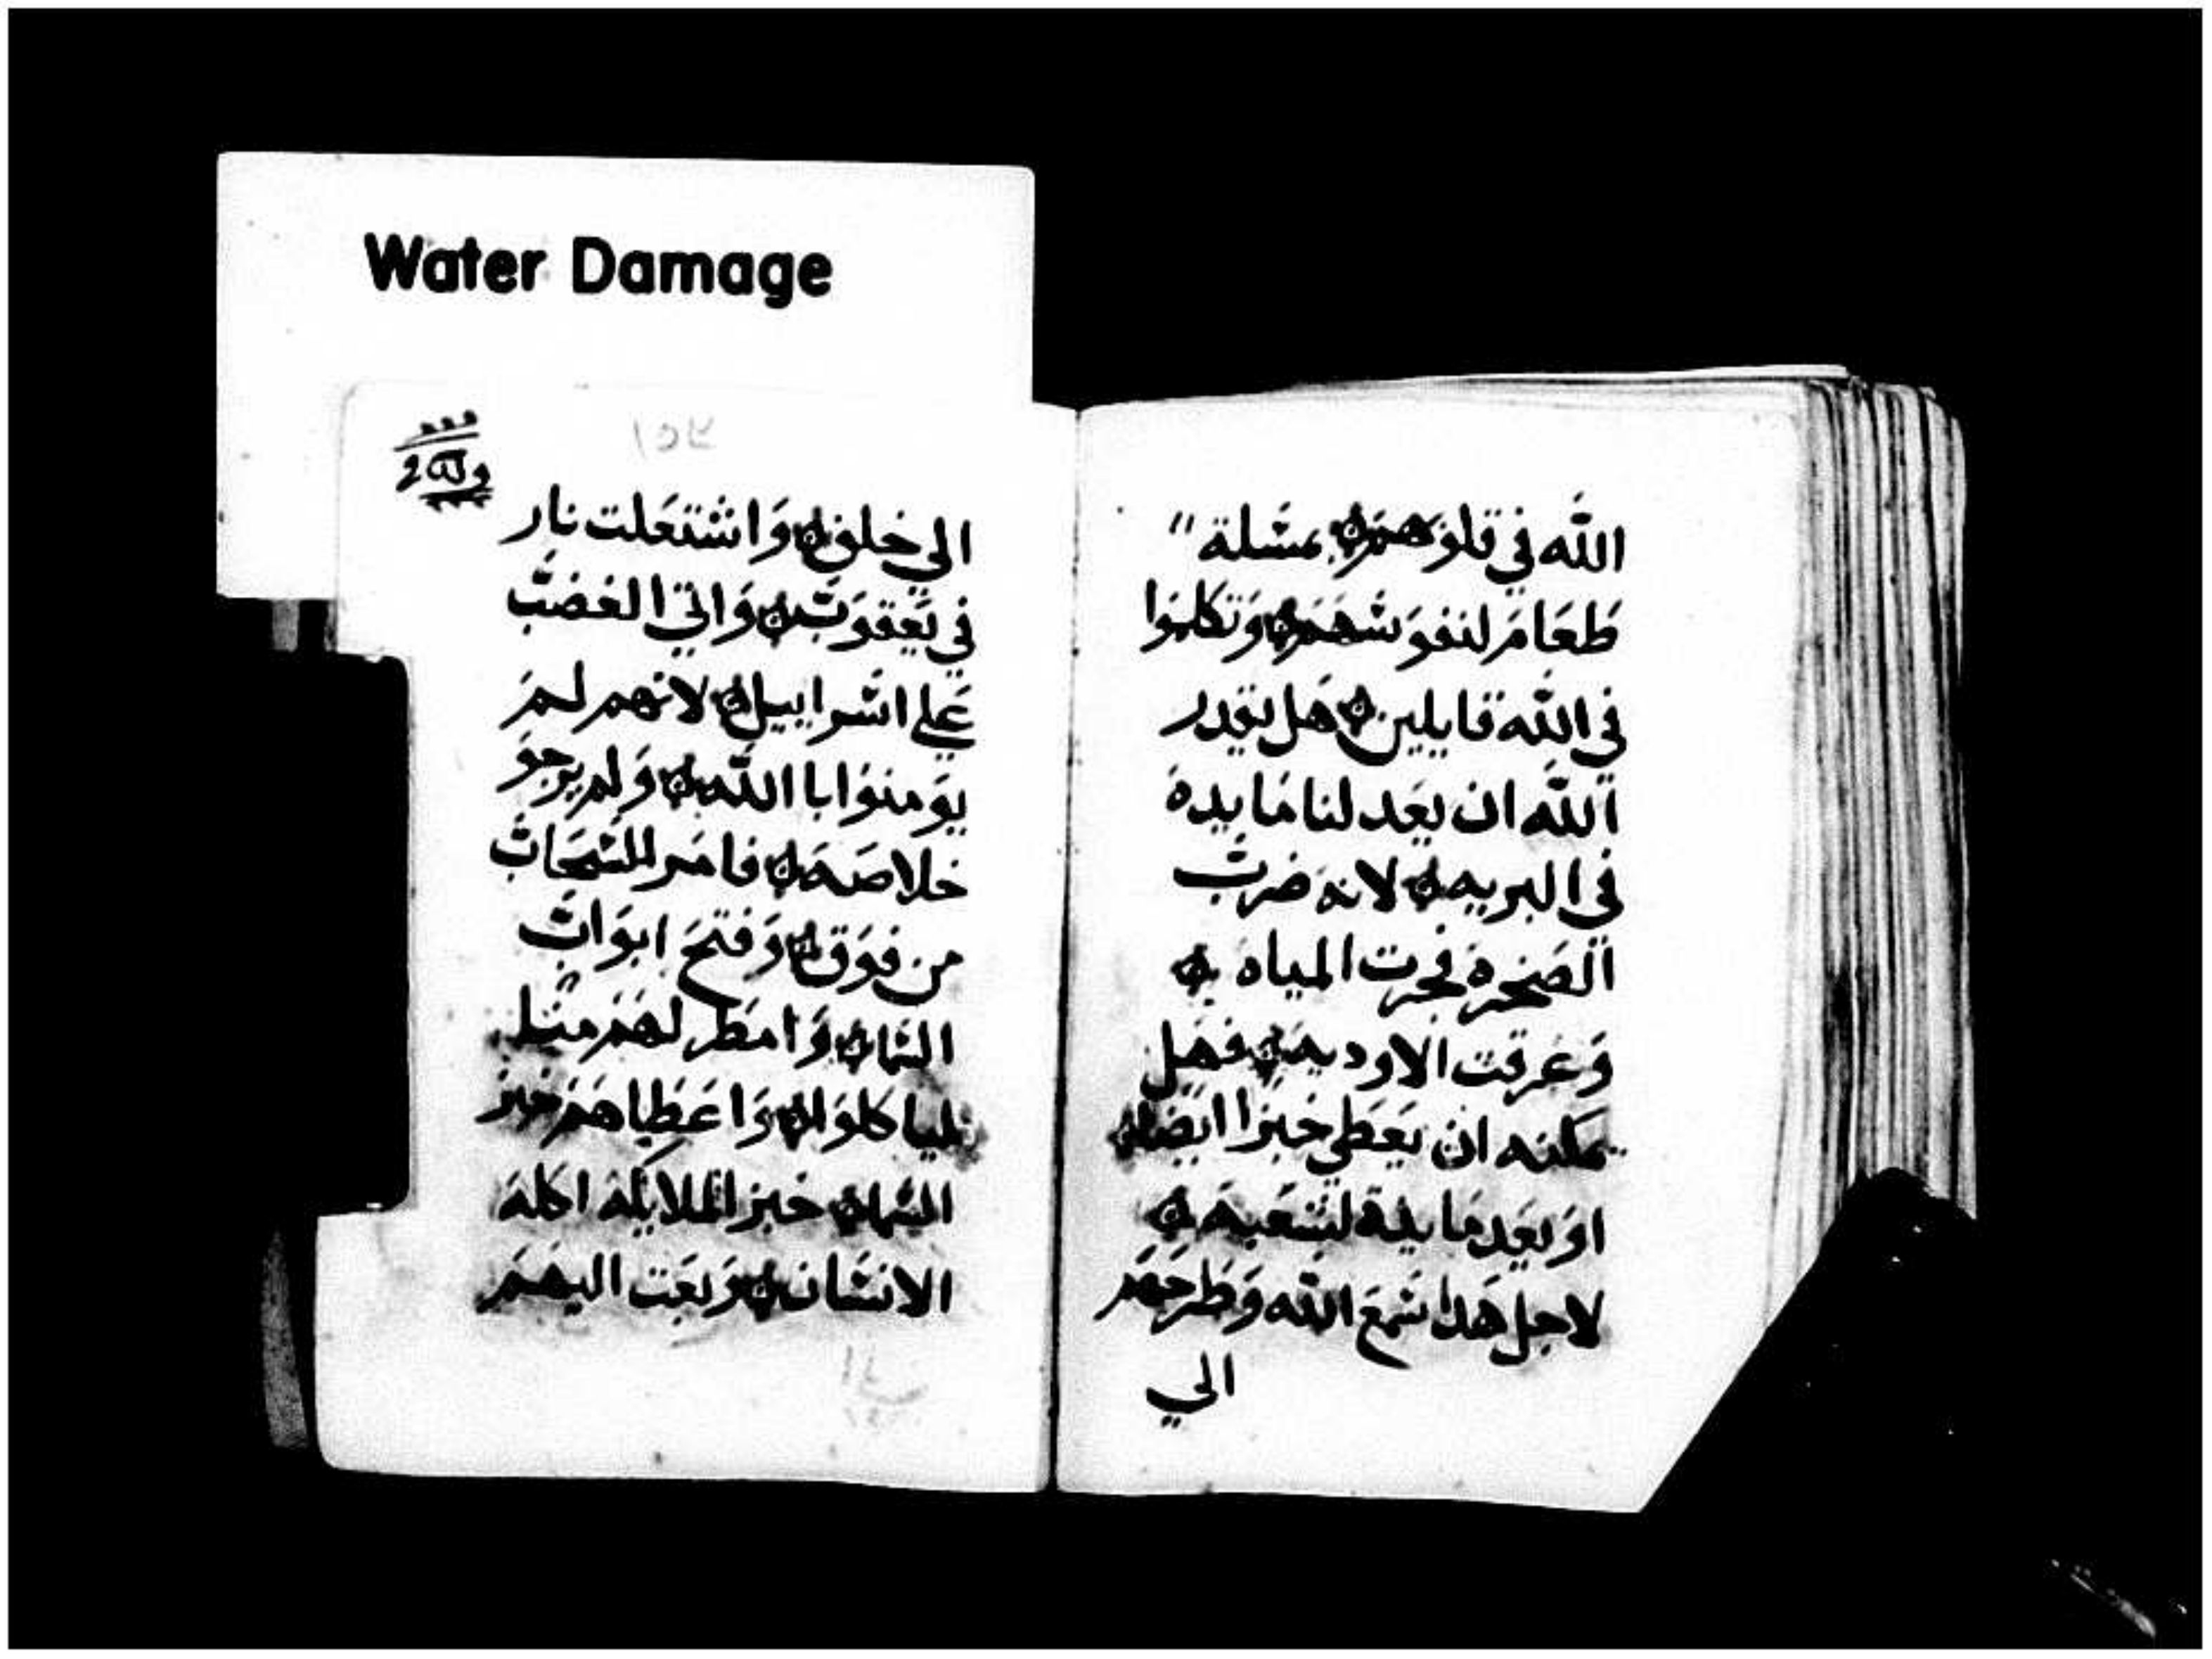 Water Damage
الله في قلوبهم بمسلة
طعام لنفوسهم وتكلموا
في الله قايلين هل يقدر
الله ان يعد لنا مايده
في البريه لانه ضرب
الصخره فجرت المياه
وغرقت الاوديه فهل
يمكنه ان يعطي خبزا ايضا
او يعد مايدة لشعبه
لاجل هدا سمع الله وطرحهم
الي
١٥٢
الي خلف واشتعلت نار
في يعقوب واتي الغضب
علي اسراييل لانهم لم
يومنوا با الله ولم يرجو
خلاصه فامر للسحاب
من فوق وفتح ابواب
السما وامطر لهم منا
لياكلوا واعطاهم خبز
السما خبز الملايكه اكله
الانسان وبعت اليهم